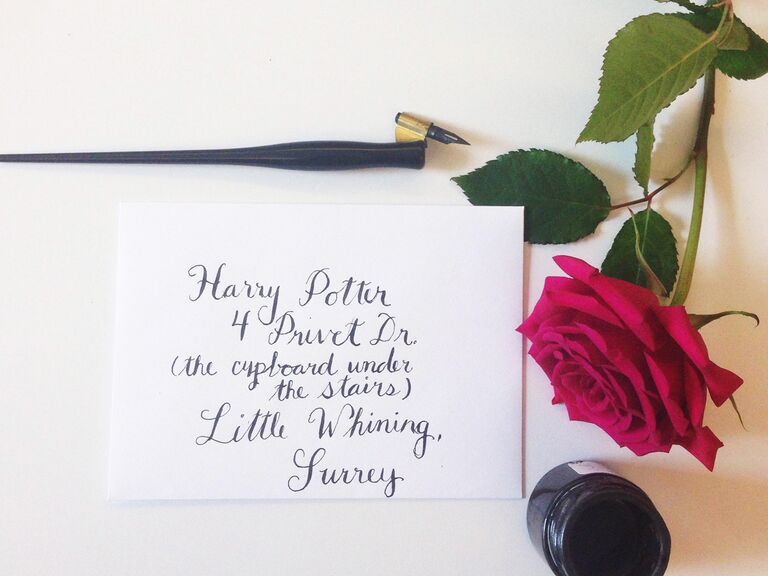 Harry Potter
4 Privet Dr.
(the cupboard under
the stairs)
Little Whining,
Surrey